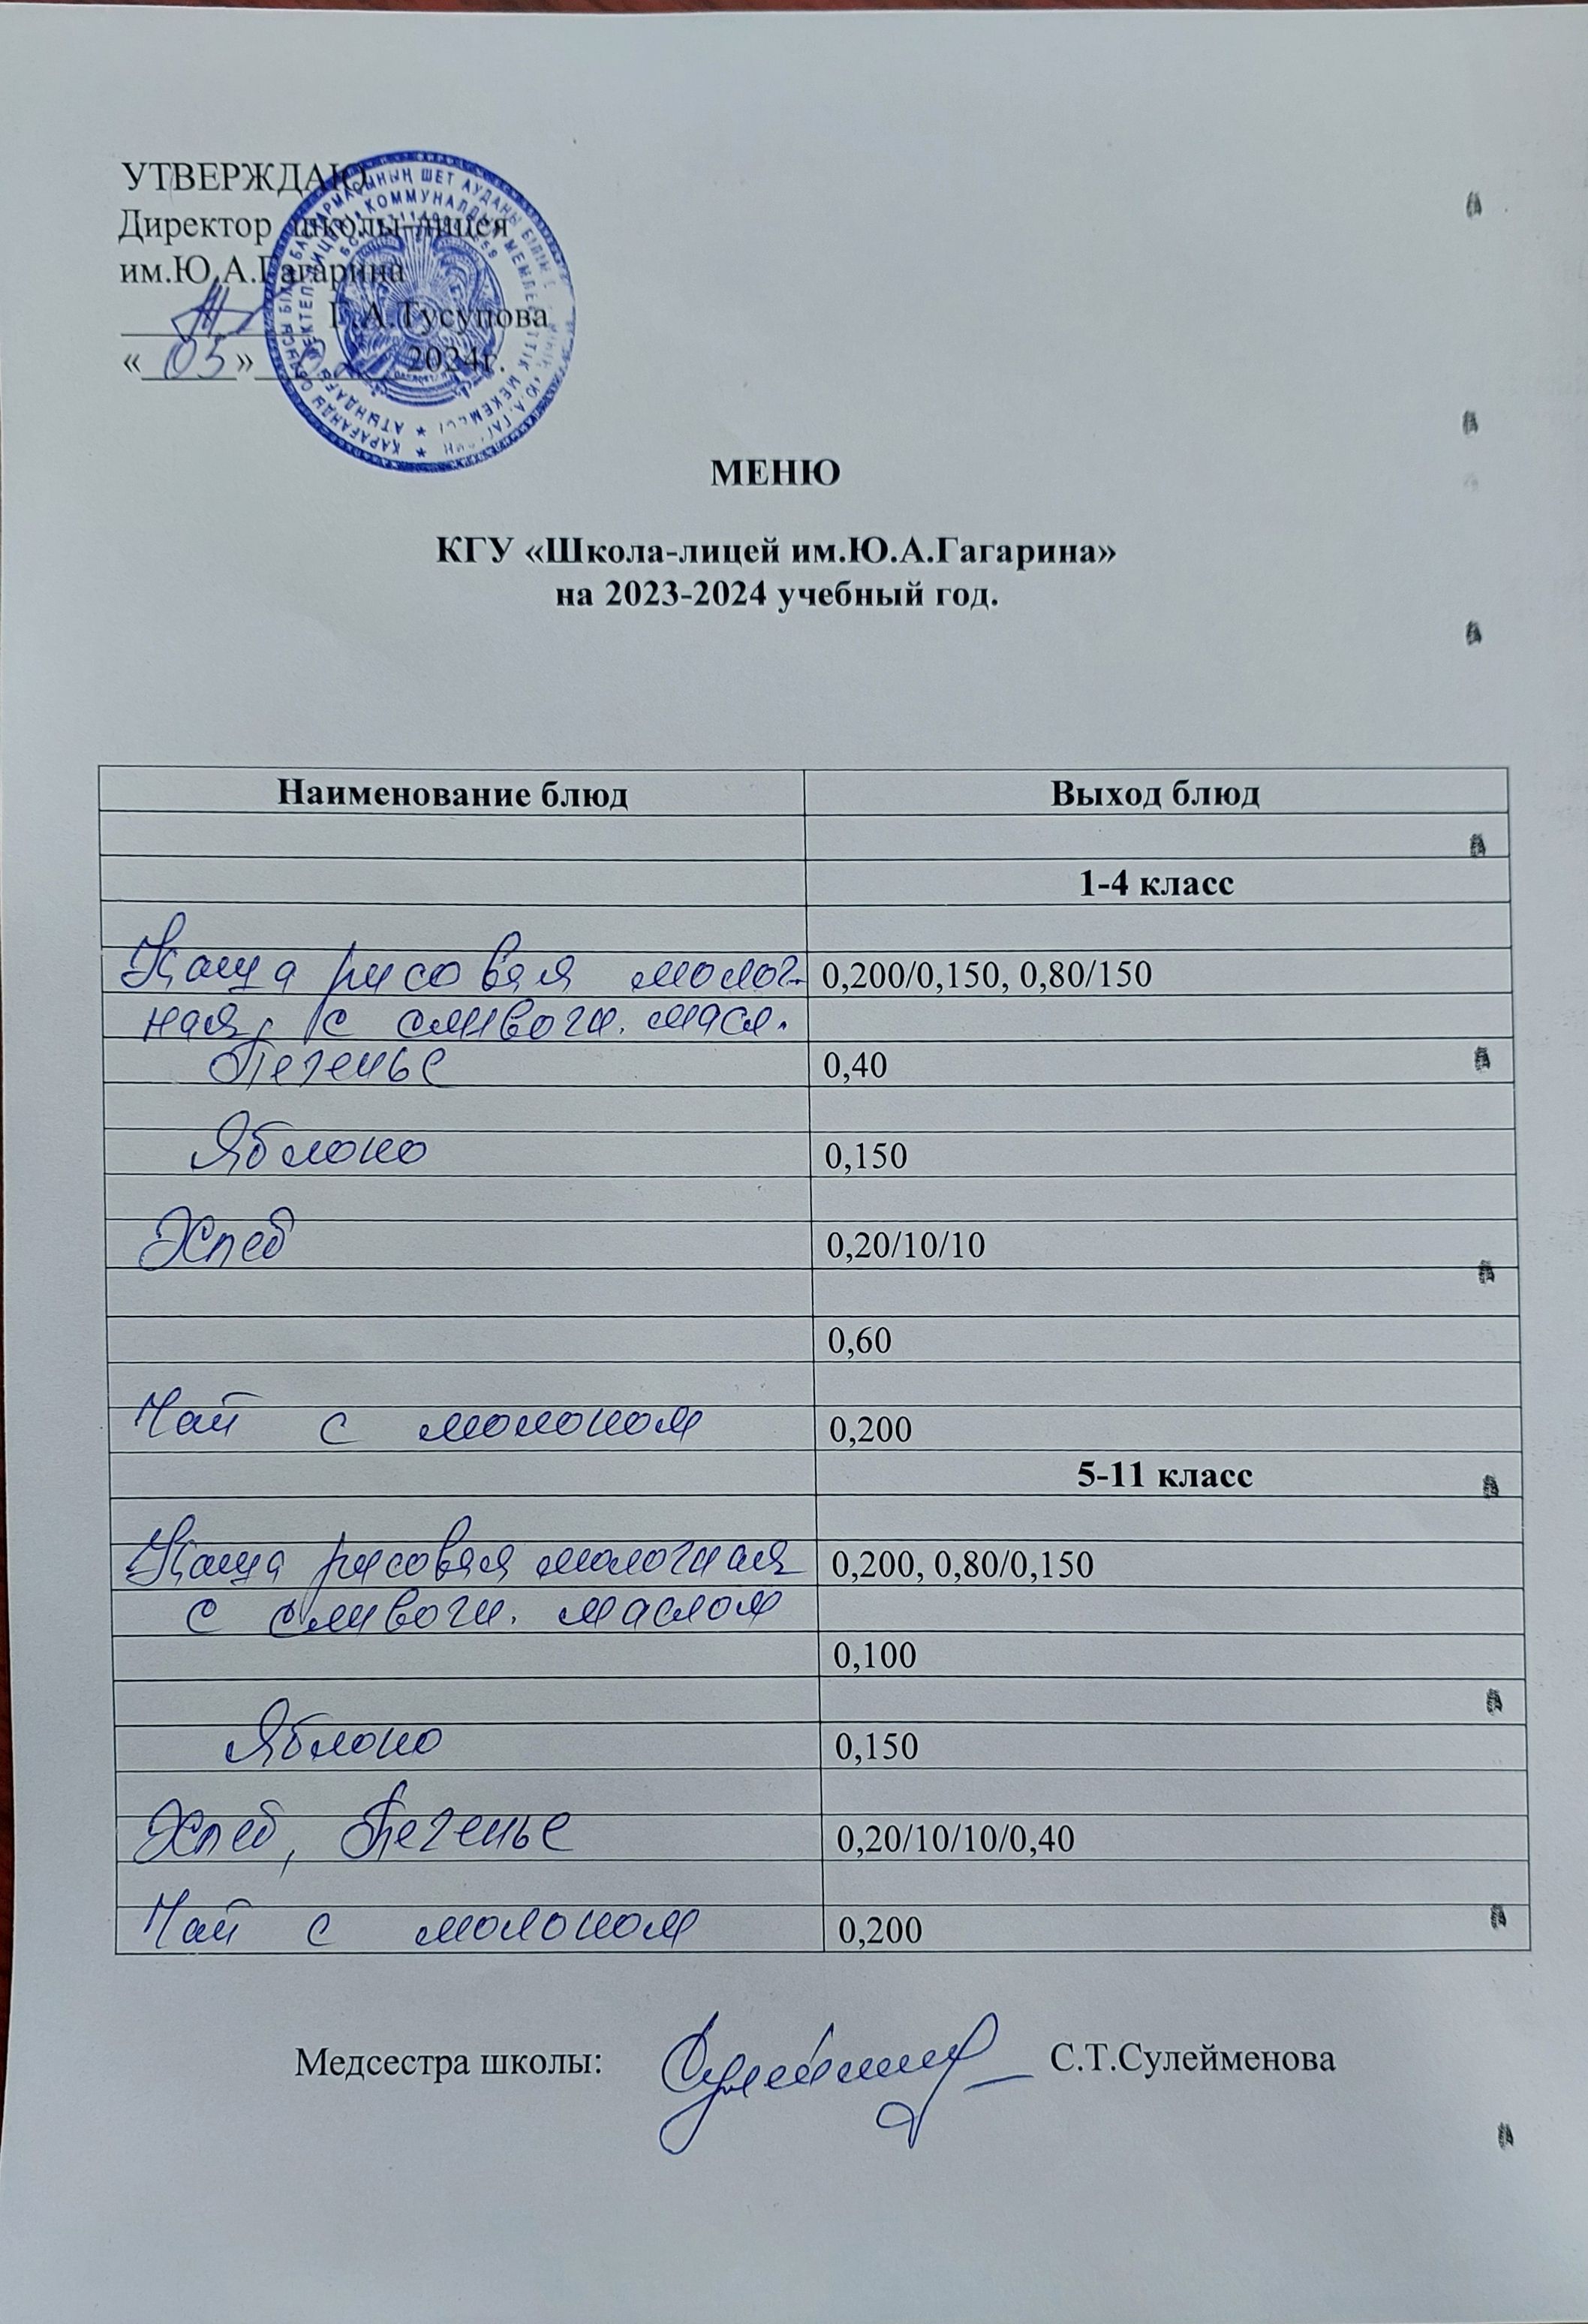 УТВЕРЖДАЮ
Директор школы-лицея
им.Ю.А.Гагарина
Г.А.Тусупова
«05» 02 2024г.
МЕНЮ
КГУ «Школа-лицей им.Ю.А.Гагарина»
на 2023-2024 учебный год.
Наименование блюд Выход блюд
1-4 класс
Каша рисовая молоч- 0,200/0,150, 0,80/150
ная, с сливочн. масл.
Печенье 0,40
Яблоко 0,150
Хлеб 0,20/10/10
0,60
Чай с молоком 0,200
5-11 класс
Каша рисовая молочная 0,200, 0,80/0,150
с сливочн. маслом
0,100
Яблоко 0,150
Хлеб, Печенье 0,20/10/10/0,40
Чай с молоком 0,200
Медсестра школы: С.Т.Сулейменова